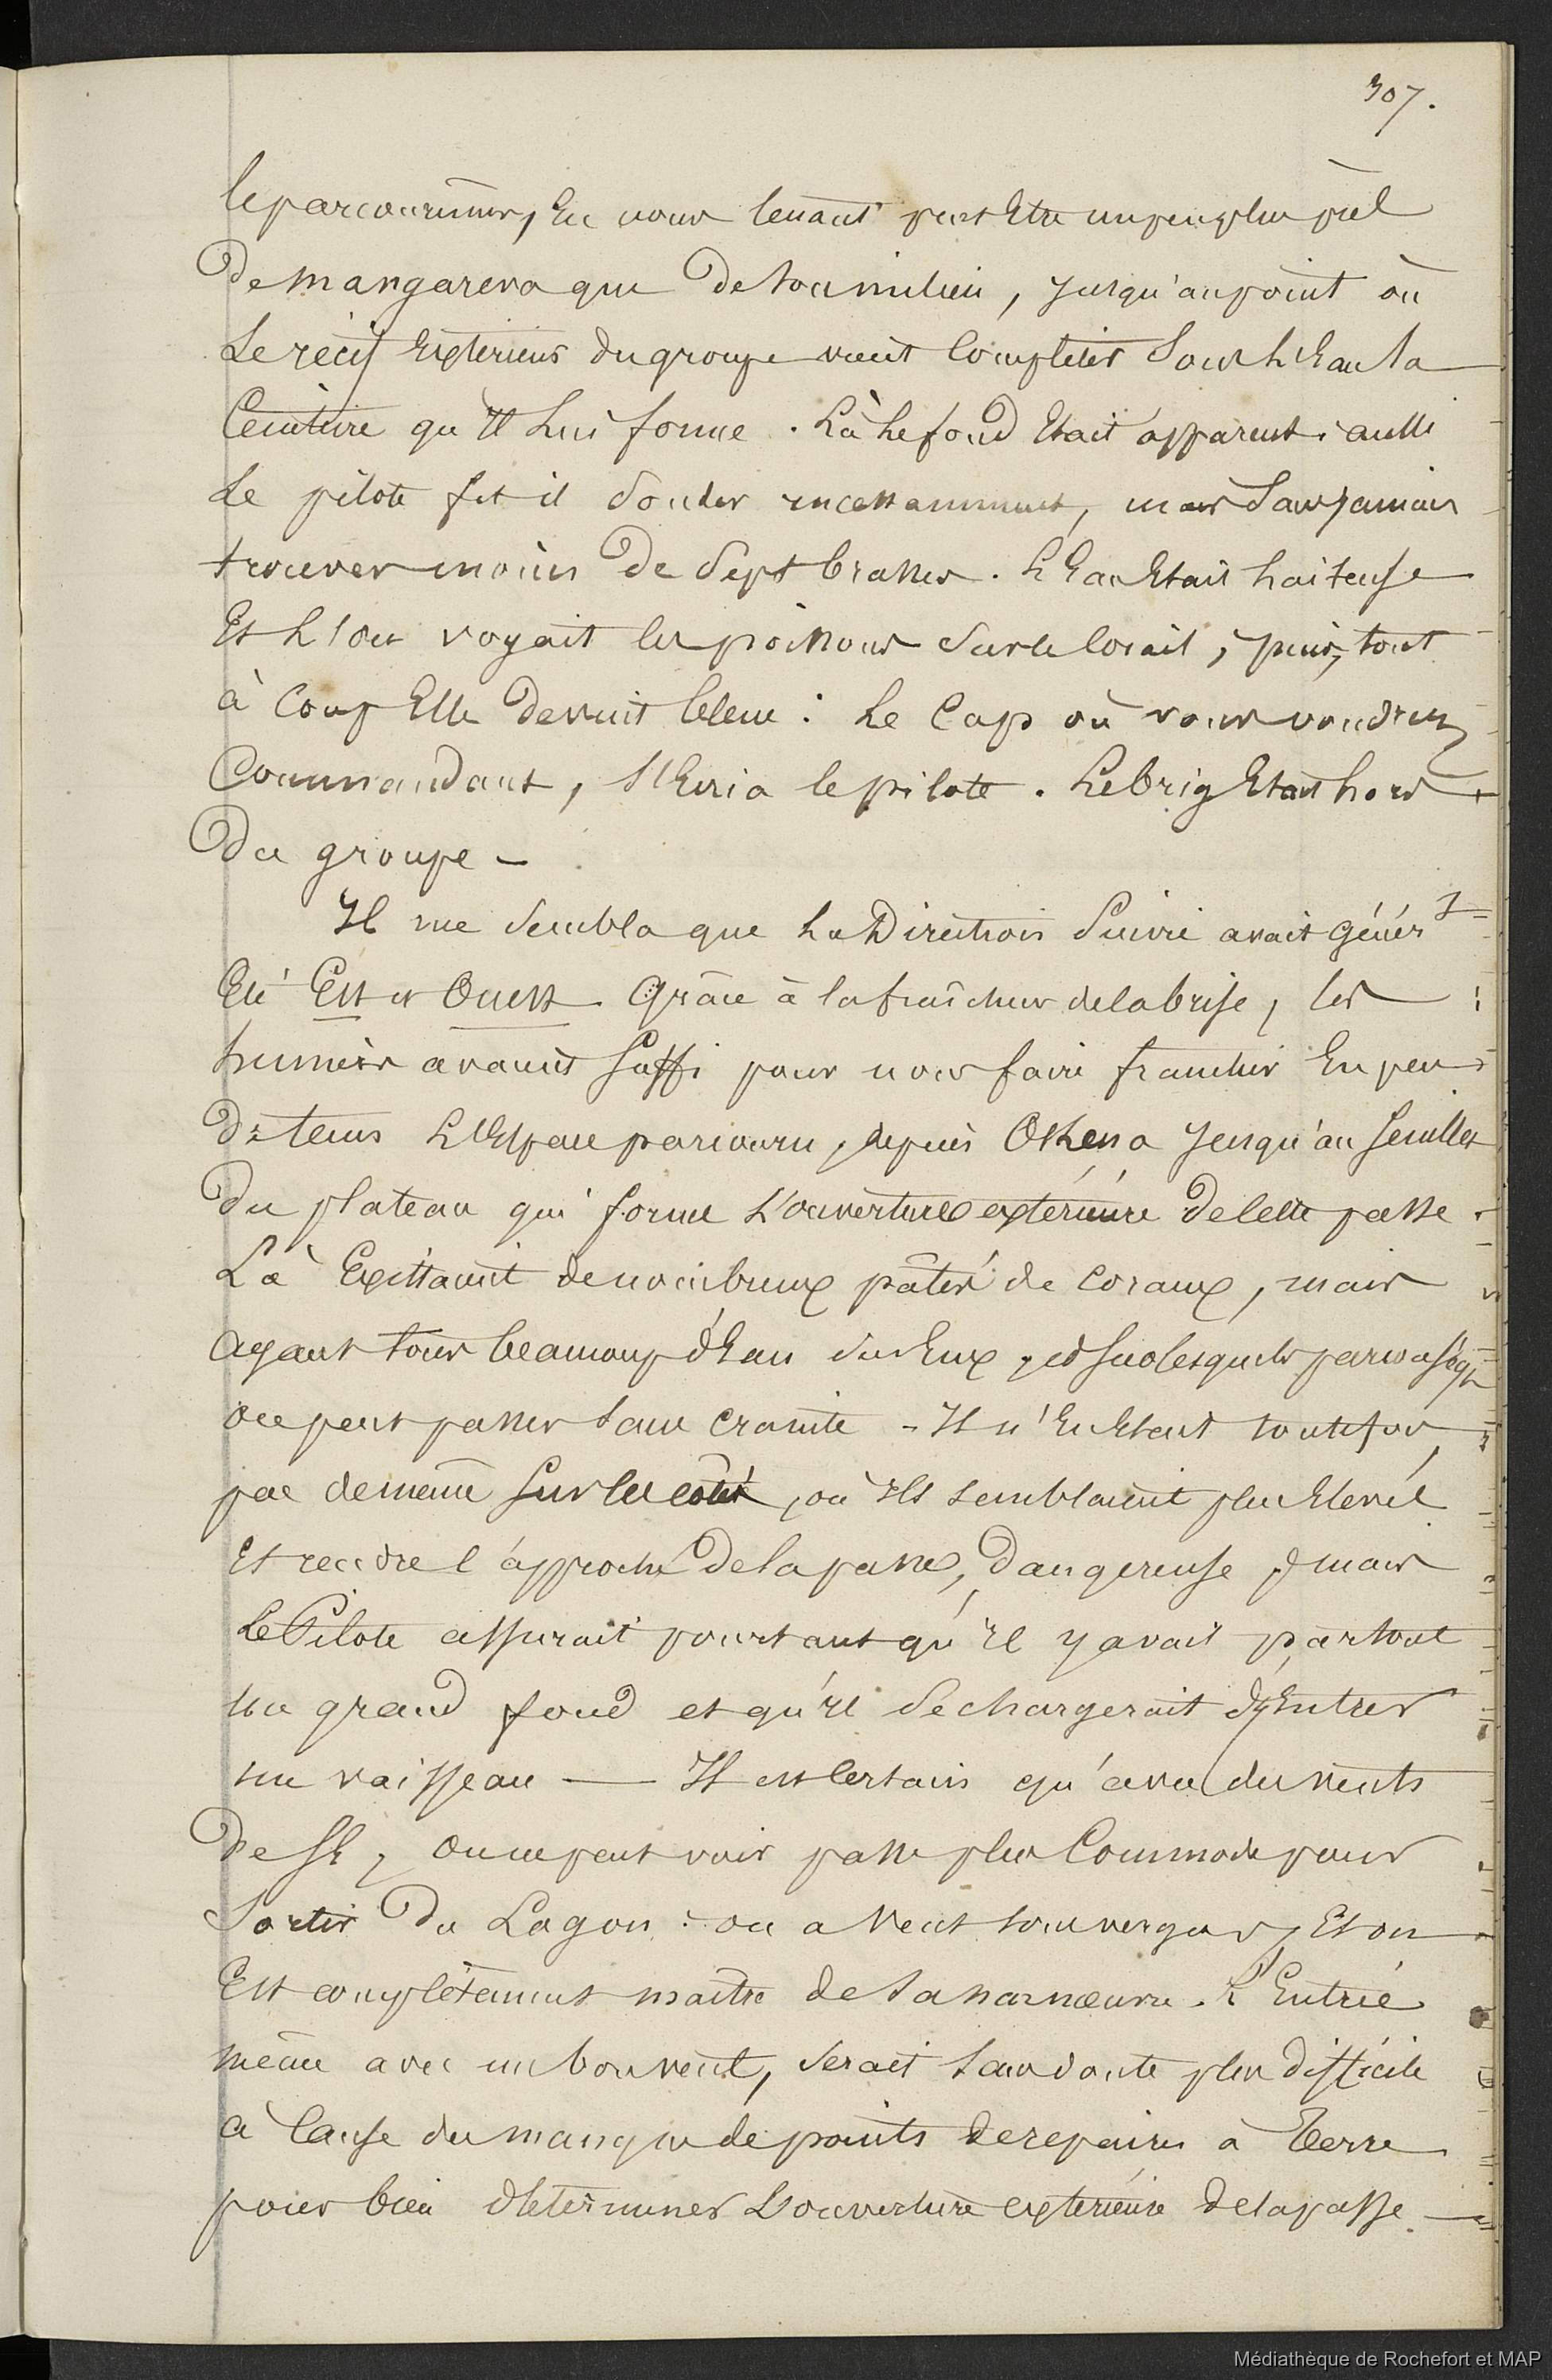 307.
le parcourûmes, En nous tenant peut Etre un peu plus près
De mangareva que De son milieu, jusqu'au point où
Le récif Extérieur du groupe vient Compléter Sous L'Eau la
Ceinture qu'Il Lui forme. Là Le fond Etait apparent : aussi
Le pilote fit il Sonder incessamment, mais Sans jamais
trouver moins De Sept brasses. L'Eau Etait laiteuse
Et L'on voyait les poissons Sur le Corail ; puis, tout
à Coup Elle Devint bleue : Le Cap où vous voudrez
Commandant, s'Ecria le pilote. Le brig Etait hors
Du groupe —
Il me Sembla que La Direction Suivie avait génér t
Eté Est et Ouest. Grâce à la fraîcheur de la brise, les
huniers avaient Suffi pour nous faire franchir En peu
De tems L'Espace parcouru, depuis Okena jusqu'au
Du plateau qui forme L'ouverture extérieure De cette passe.
Là Existaient de nombreux pâtés de Coraux, mais
Ayant tous beaucoup d'Eau Sur Eux, et Sur lesquels par
on peut passer Sans Crainte — Il n'En Etait toutefois
pas de même Sur les côtés, où Ils Semblaient plus Elevés
Et rendre l'approche De la passe, Dangereuse ; mais
Le Pilote assurait pourtant qu'Il y avait partout
un grand fond et qu'Il Se chargerait d'y Entrer
un vaisseau — Il est Certain qu'avec des vents
De SE, on ne peut voir passe plus Commode pour
Sortir Du Lagon : on a Vent sous vergues, Et on
Est complètement maître de Sa manœuvre. L'Entrée
même avec un bon vent, Serait Sans doute plus Difficile
à Cause du manque de points de repaires à Terre
pour bien déterminer L'ouverture extérieure De la passe —
Médiathèque de Rochefort et MAP